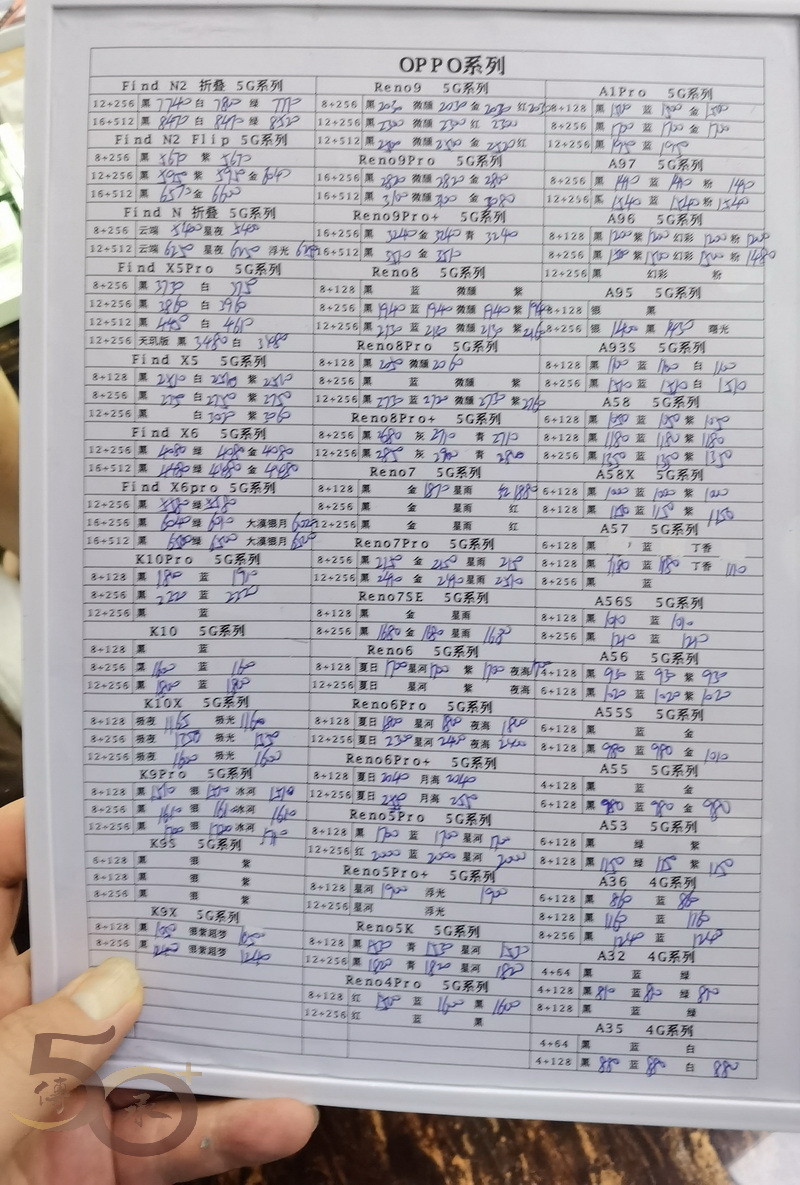 OPPO系列
Find N2 折叠 5G系列
12+256 黑 7740 白 7800 绿
16+512 黑 8470 白 8470 绿 8520
Find N2 Flip 5G系列
8+256 黑 5670 紫 5670
12+256 黑 紫 金 6040
16+512 黑 6570 金 6600
Find N 折叠 5G系列
8+256 云端 5400 星夜 5400
12+512 云端 6250 星夜 6250 浮光
Find X5Pro 5G系列
8+256 黑 3730 白 3750
12+256 黑 3860 白 3960
12+512 黑 白 4610
12+256 天玑版 黑 3480 白 3480
Find X5 5G系列
8+128 黑 2510 白 2510 紫 2510
8+256 黑 2750 白 2750 紫 2750
12+256 黑 白 紫 3060
Find X6 5G系列
12+256 黑 4080 绿 4080 金 4080
16+512 黑 4480 绿 金
Find X6pro 5G系列
12+256 黑 绿
16+256 黑 6040 绿 大漠银月
16+512 黑 6500 绿 6500 大漠银月 6500
K10Pro 5G系列
8+128 黑 蓝
8+256 黑 2220 蓝 2220
12+256 黑 蓝
K10 5G系列
8+128 黑 蓝
8+256 黑 1600 蓝 1600
12+256 黑 1800 蓝 1800
K10X 5G系列
8+128 极夜 1165 极光 1160
8+256 极夜 1350 极光 1350
12+256 极夜 1600 极光 1600
K9Pro 5G系列
8+128 黑 1510 银 冰河 1510
8+256 黑 1610 银 1610 冰河 1610
12+256 黑 1700 银 1700 冰河
K9S 5G系列
6+128 黑 银 紫
8+128 黑 银 紫
8+256 黑 银 紫
K9X 5G系列
8+128 黑 1050 银紫超梦 1050
8+256 黑 1240 银紫超梦 1240
Reno9 5G系列
8+256 黑 2030 微醺 2030 金 2030 红 2030
12+256 黑 2300 微醺 2300 红 2300
12+512 黑 2500 微醺 2500 金 2520 红
Reno9Pro 5G系列
16+256 黑 2820 微醺 2820 金 2800
16+512 黑 3100 微醺 金 3080
Reno9Pro+ 5G系列
16+256 黑 3240 金 3240 青 3240
16+512 黑 3510 金 3510
Reno8 5G系列
8+128 黑 蓝 微醺 紫
8+256 黑 1940 蓝 1940 微醺 1940 紫 1940
12+256 黑 2130 蓝 微醺 2130 紫 2160
Reno8Pro 5G系列
8+128 黑 2050 微醺 2060
8+256 黑 蓝 微醺 紫
12+256 黑 2730 蓝 微醺 2730 紫 2760
Reno8Pro+ 5G系列
8+256 黑 灰 2710 青 2710
12+256 黑 灰 青 2800
Reno7 5G系列
8+128 黑 金 1870 星雨 红 1880
8+256 黑 金 星雨 红
12+256 黑 金 星雨 红
Reno7Pro 5G系列
8+256 黑 2150 金 2150 星雨 2150
12+256 黑 金 星雨 2510
Reno7SE 5G系列
8+128 黑 金 星雨
8+256 黑 1680 金 1680 星雨 1680
Reno6 5G系列
8+128 夏日 1700 星河 1700 紫 1700 夜海
12+256 夏日 星河 紫 夜海
Reno6Pro 5G系列
8+128 夏日 1800 星河 1800 夜海 1800
12+256 夏日 2300 星河 2400 夜海 2400
Reno6Pro+ 5G系列
8+128 夏日 2040 月海 2040
12+256 夏日 月海 2550
Reno5Pro 5G系列
8+128 黑 1700 蓝 1700 星河 1700
12+256 红 2000 蓝 2000 星河 2000
Reno5Pro+ 5G系列
8+128 星河 1900 浮光 1900
12+256 星河 浮光
Reno5K 5G系列
8+128 黑 1530 青 1530 星河 1530
12+256 黑 1820 青 1820 星河 1820
Reno4Pro 5G系列
8+128 红 1500 蓝 1600 黑 1600
12+256 红 蓝 黑
A1Pro 5G系列
8+128 黑 1500 蓝 1500 金 1500
8+256 黑 1700 蓝 1700 金 1700
12+256 黑 1950 蓝 1950
A97 5G系列
8+256 黑 1440 蓝 1440 粉 1440
12+256 黑 1540 蓝 1540 粉 1540
A96 5G系列
8+128 黑 1200 紫 1200 幻彩 1200 粉 1200
8+256 黑 紫 1500 幻彩 1500 粉 1480
12+256 黑 幻彩 粉
A95 5G系列
8+128 银 黑
8+256 银 1400 黑 曙光
A93S 5G系列
8+128 黑 1100 蓝 1100 白 1100
8+256 黑 1310 蓝 1310 白 1310
A58 5G系列
6+128 黑 1050 蓝 1050 紫 1050
8+128 黑 1180 蓝 1180 紫 1180
8+256 黑 1350 蓝 1350 紫 1350
A58X 5G系列
6+128 黑 1000 蓝 1000 紫 1000
8+128 黑 1150 蓝 1150 紫 1150
A57 5G系列
6+128 黑 蓝 丁香
8+128 黑 1180 蓝 1180 丁香
8+256 黑 蓝
A56S 5G系列
8+128 黑 1010 蓝 1010
8+256 黑 1210 蓝 1210
A56 5G系列
4+128 黑 930 蓝 930 紫 930
6+128 黑 1020 蓝 1020 紫 1020
A55S 5G系列
6+128 黑 蓝 金
8+128 黑 980 蓝 980 金 1010
A55 5G系列
4+128 黑 蓝 金
6+128 黑 980 蓝 980 金 980
A53 5G系列
6+128 黑 绿 紫
8+128 黑 1150 绿 1150 紫 1150
A36 4G系列
6+128 黑 860 蓝 860
8+128 黑 1160 蓝 1160
8+256 黑 1240 蓝 1240
A32 4G系列
4+64 黑 蓝 绿
4+128 黑 810 蓝 810 绿 810
8+128 黑 蓝 绿
A35 4G系列
4+64 黑 蓝 白
4+128 黑 880 蓝 880 白 880
50+
傳承